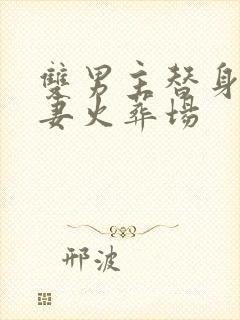 雙男主替身
妻火葬場
邢波